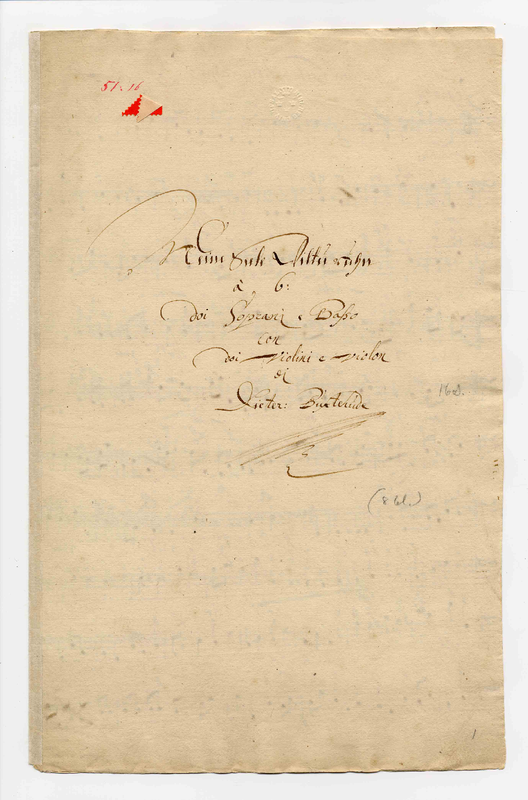 51:16
Meine Seele Willtu ruhn
à 6:
doi Soprani e Basso
con
doi Violini e Violon
di
Dieter: Buxtehude
168.
(8 bl.)
1